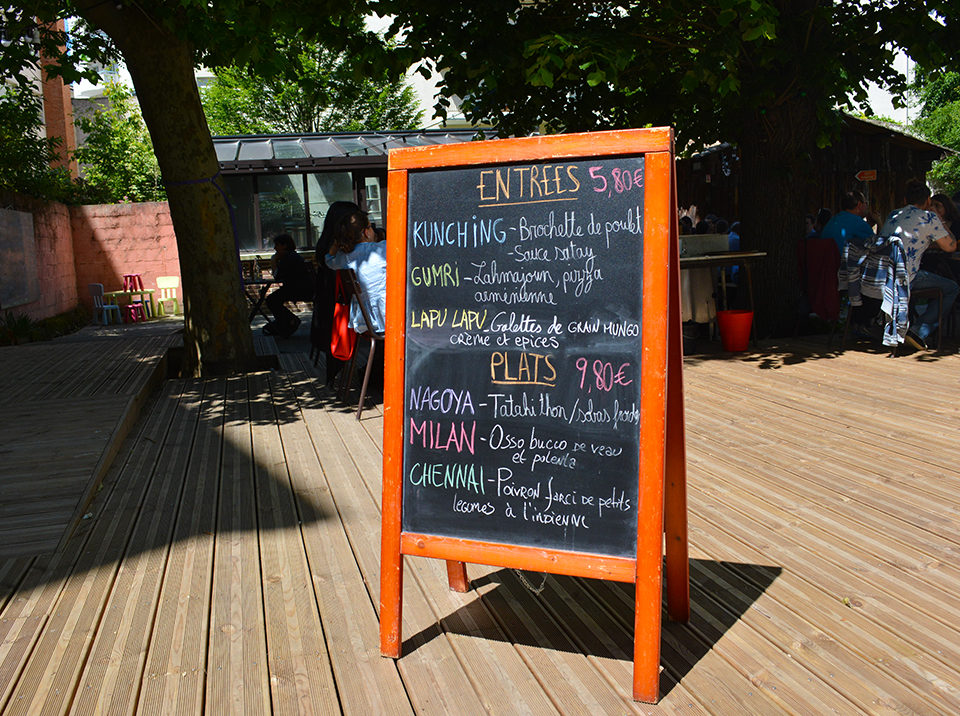 ENTREES 5,80€
KUNCHING - Brochette de poulet
- Sauce satay
GUMRI - Lahmajoun, pizza
arménienne
LAPU LAPU - Galettes de GRAIN MUNGO
CRÈME et EPICES
PLATS 9,80€
NAGOYA - Tataki thon / sobas froides
MILAN - Osso bucco de veau
et polenta
CHENNAI - Poivron farci de petits
legumes à l'indienne